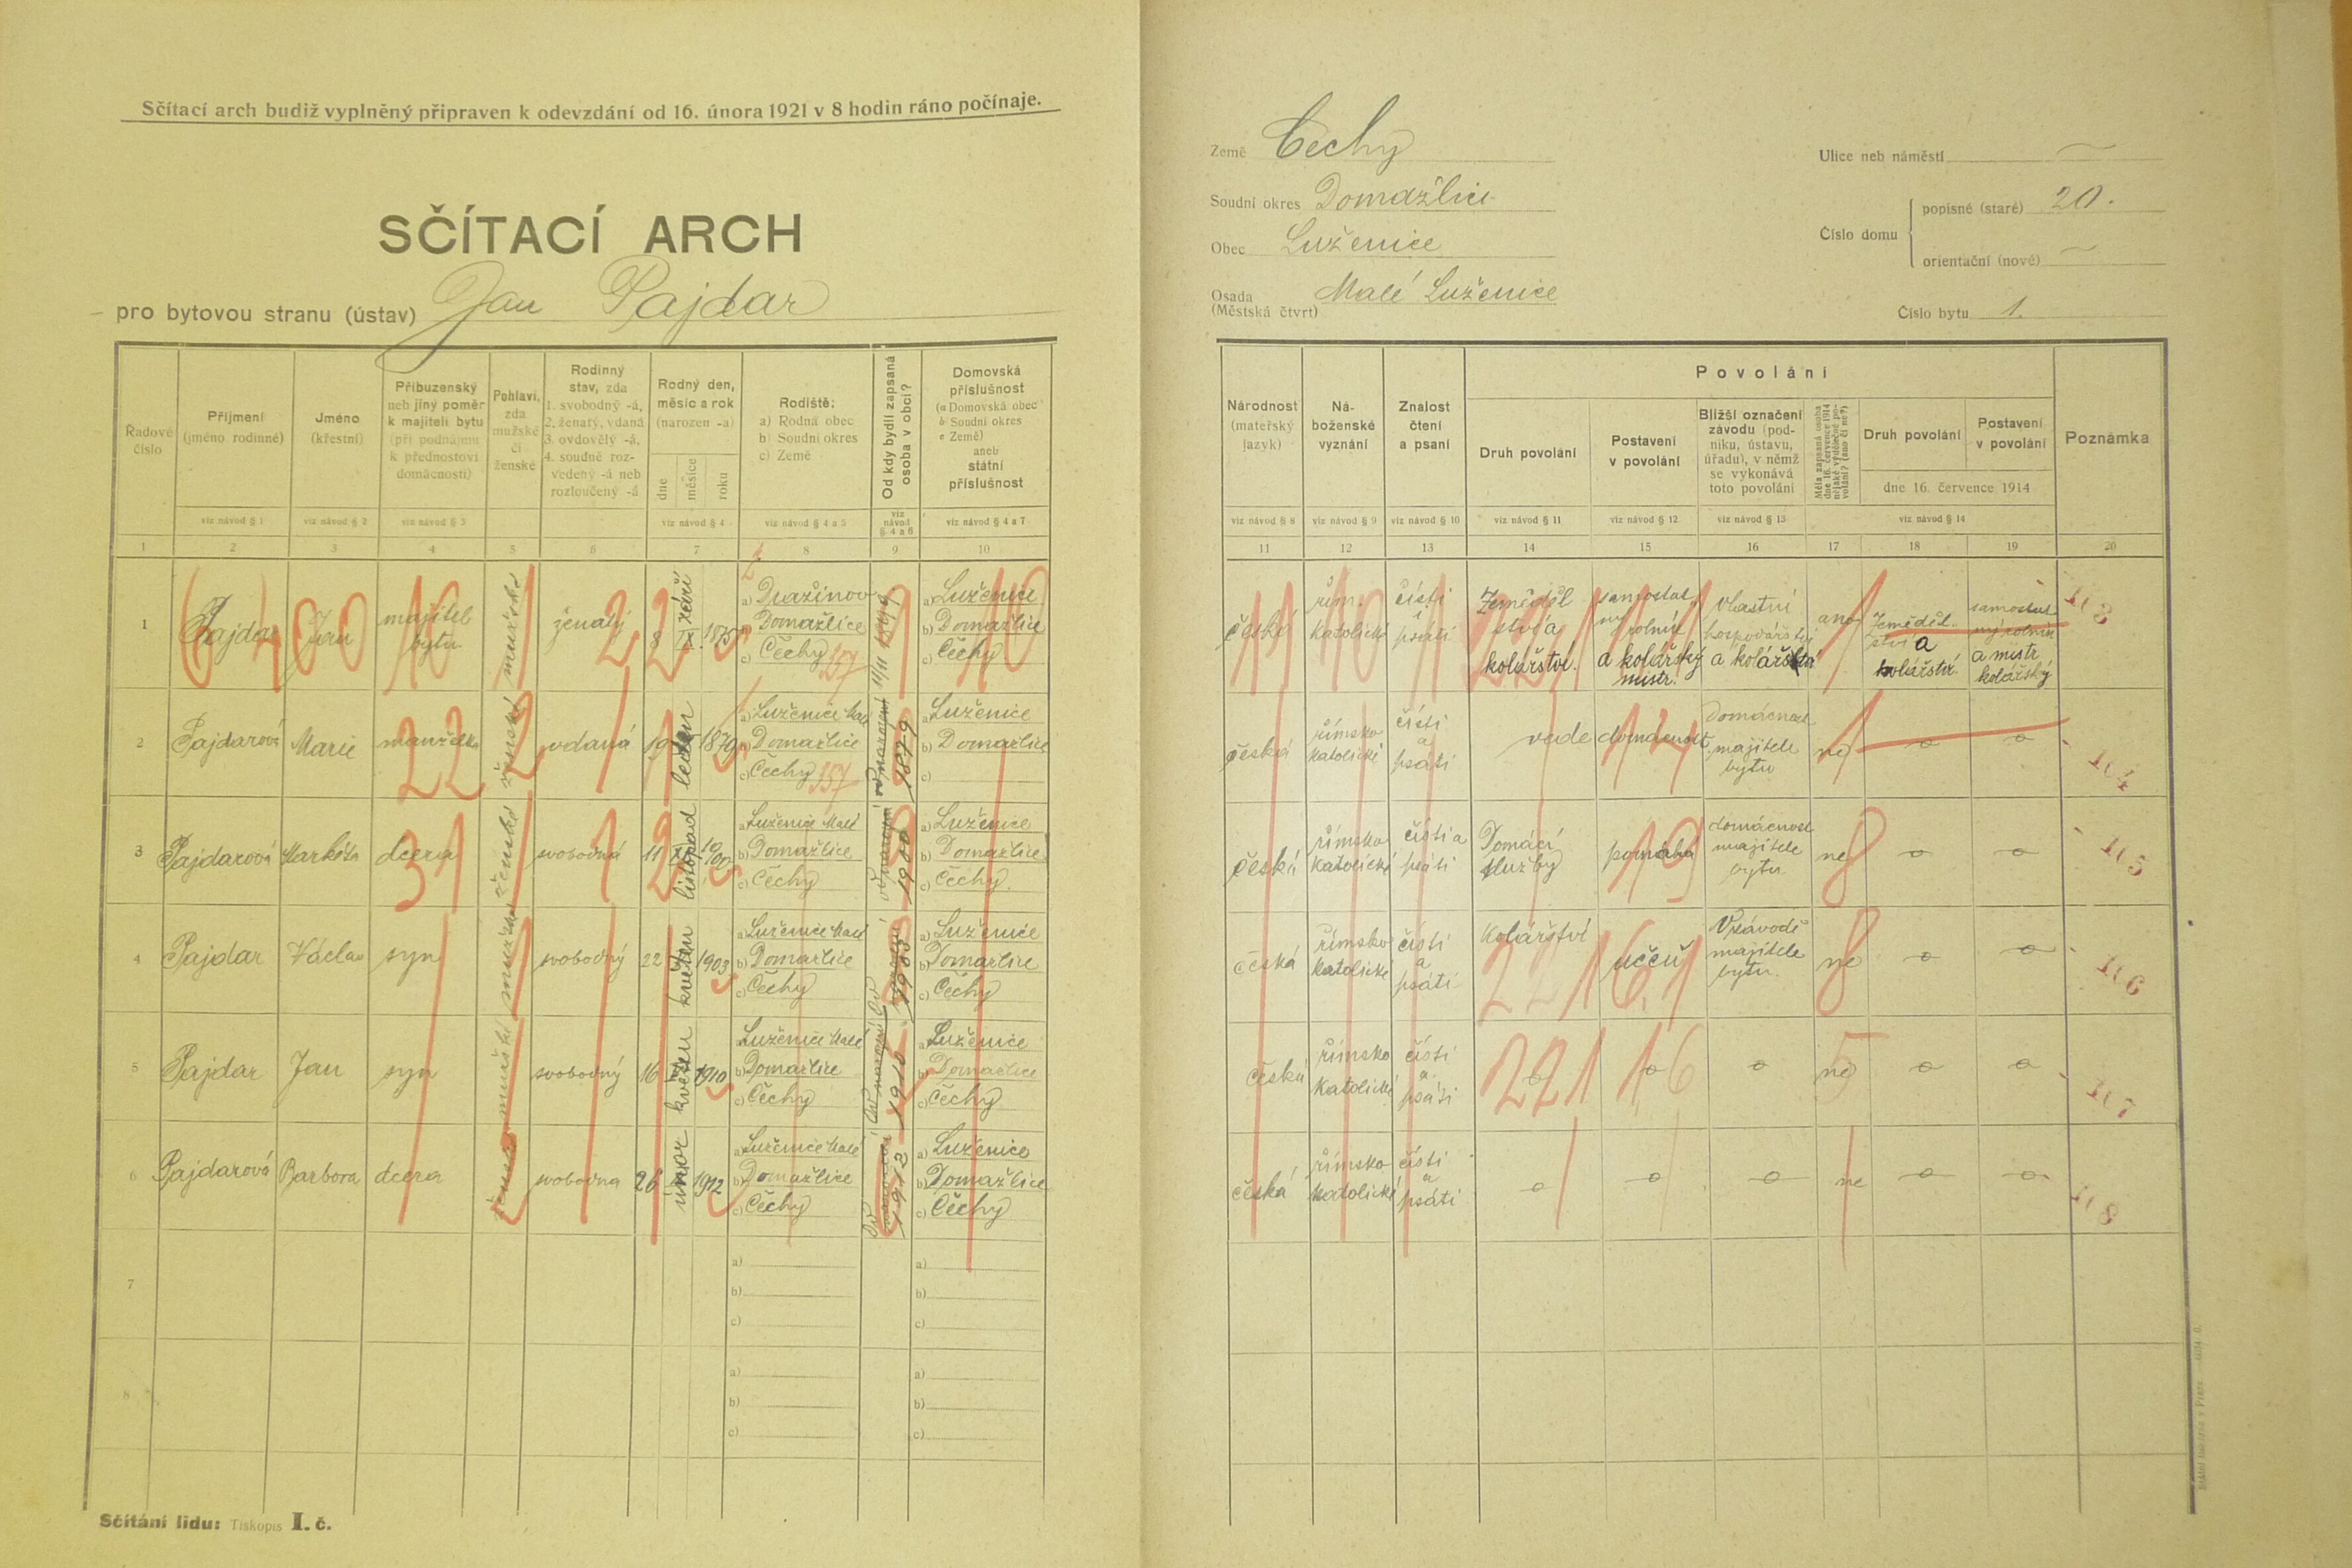 Sčítací arch budiž vyplněný připraven k odevzdání od 16. února 1921 v 8 hodin ráno počínaje.
SČÍTACÍ ARCH
pro bytovou stranu (ústav) Jan Pajdar
Země Čechy
Soudní okres Domažlice
Obec Luženice
Osada (Městská čtvrt) Malé Luženice
Ulice neb náměstí
Číslo domu
popisné (staré) 20.
orientační (nové)
Číslo bytu 1.
Řadové číslo
Příjmení (jméno rodinné)
Jméno (křestní)
Příbuzenský neb jiný poměr k majiteli bytu (při podnájmu k přednostovi domácnosti)
Pohlaví, zda mužské či ženské
Rodinný stav, zda 1. svobodný -á, 2. ženatý, vdaná 3. ovdovělý -á, 4. soudně rozvedený -á neb rozloučený -á
Rodný den, měsíc a rok (narozen -a)
dne měsíce roku
Rodiště: a) Rodná obec b) Soudní okres c) Země
Od kdy bydlí zapsaná osoba v obci?
Domovská příslušnost (a Domovská obec b Soudní okres c Země) aneb státní příslušnost
viz návod § 1 viz návod § 2 viz návod § 3 viz návod § 4 viz návod § 4 a 5 viz návod § 4 a 6 viz návod § 4 a 7
1 2 3 4 5 6 7 8 9 10
Národnost (mateřský jazyk)
Náboženské vyznání
Znalost čtení a psaní
Povolání
Druh povolání
Postavení v povolání
Bližší označení závodu (podniku, ústavu, úřadu), v němž se vykonává toto povolání
Měla zapsaná osoba dne 16. července 1914 nějaké výdělečné povolání? (ano či ne?)
Druh povolání
Postavení v povolání
dne 16. července 1914
Poznámka
viz návod § 8 viz návod § 9 viz návod § 10 viz návod § 11 viz návod § 12 viz návod § 13 viz návod § 14
11 12 13 14 15 16 17 18 19 20
1 Pajdar Jan majitel bytu mužské ženatý 8 IX. září 1875
a) Dražinov b) Domažlice c) Čechy 157
a) Luženice b) Domažlice c) Čechy
česká řím. katolické čísti i psáti
Zemědělství a kolářství.
samostatný rolník a kolářský mistr.
Vlastní hospodářství
ano
Zemědělství a kolářství
samostatný rolník a mistr kolářský
2 Pajdarová Marie manželka ženské vdaná leden 1879
a) Luženice Malé b) Domažlice c) Čechy 157
od narození 1879
a) Luženice b) Domažlice c)
česká římsko katolické čísti a psáti
vede domácnost
Domácnost majitele bytu
ne o o
3 Pajdarová Markéta dcera ženské svobodná 11 XI listopad 1900
a) Luženice Malé b) Domažlice c) Čechy
od narození 1900
a) Luženice b) Domažlice c) Čechy.
česká římsko katolické čísti a psáti
Domácí služby
pomáhá
domácnost majitele bytu
ne o o
4 Pajdar Václav syn mužské svobodný 22 květen 1903
a) Luženice Malé b) Domažlice c) Čechy
od narození 1903
a) Luženice b) Domažlice c) Čechy
česká římsko katolické čísti a psáti
Kolářství
učeň
V závodě majitele bytu.
ne o o
5 Pajdar Jan syn mužské svobodný 16 V květen 1910
a) Luženice Malé b) Domažlice c) Čechy
od narození 1910
a) Luženice b) Domažlice c) Čechy
česká římsko katolické čísti a psáti
o o o ne o o
6 Pajdarová Barbora dcera ženské svobodna 26 II únor 1912
a) Luženice Malé b) Domažlice c) Čechy
od narození 1912
a) Luženice b) Domažlice c) Čechy
česká římsko katolické čísti a psáti
o o o ne o o
7
a) b) c)
a) b) c)
8
a) b) c)
a) b) c)
Sčítání lidu: Tiskopis I. č.